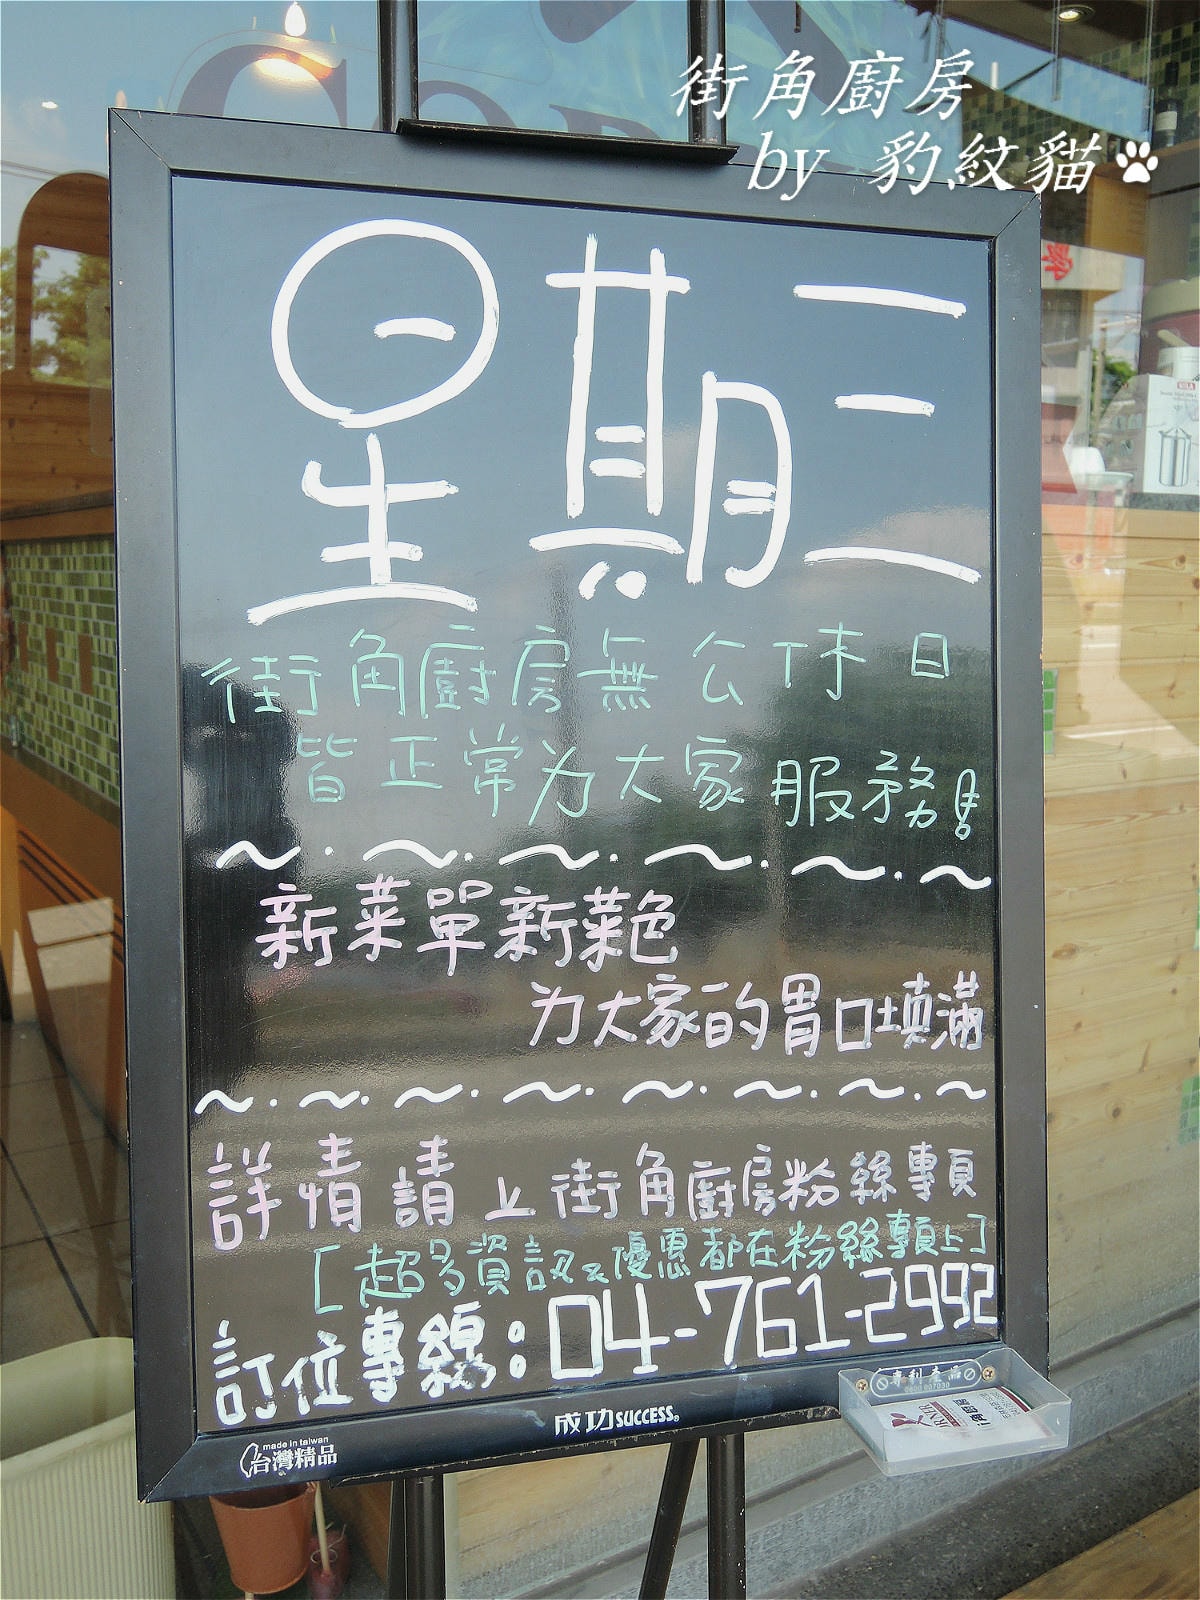 街角廚房
by 豹紋貓
星期三
街角廚房無公休日
皆正常为大家服務!
新菜單新菜色
为大家的胃口填滿
詳情請上街角廚房粉絲專頁
[超多資訊&優惠都在粉絲專頁上]
訂位專線:04-761-2992
成功SUCCESS®
made in taiwan
台灣精品
專利產品